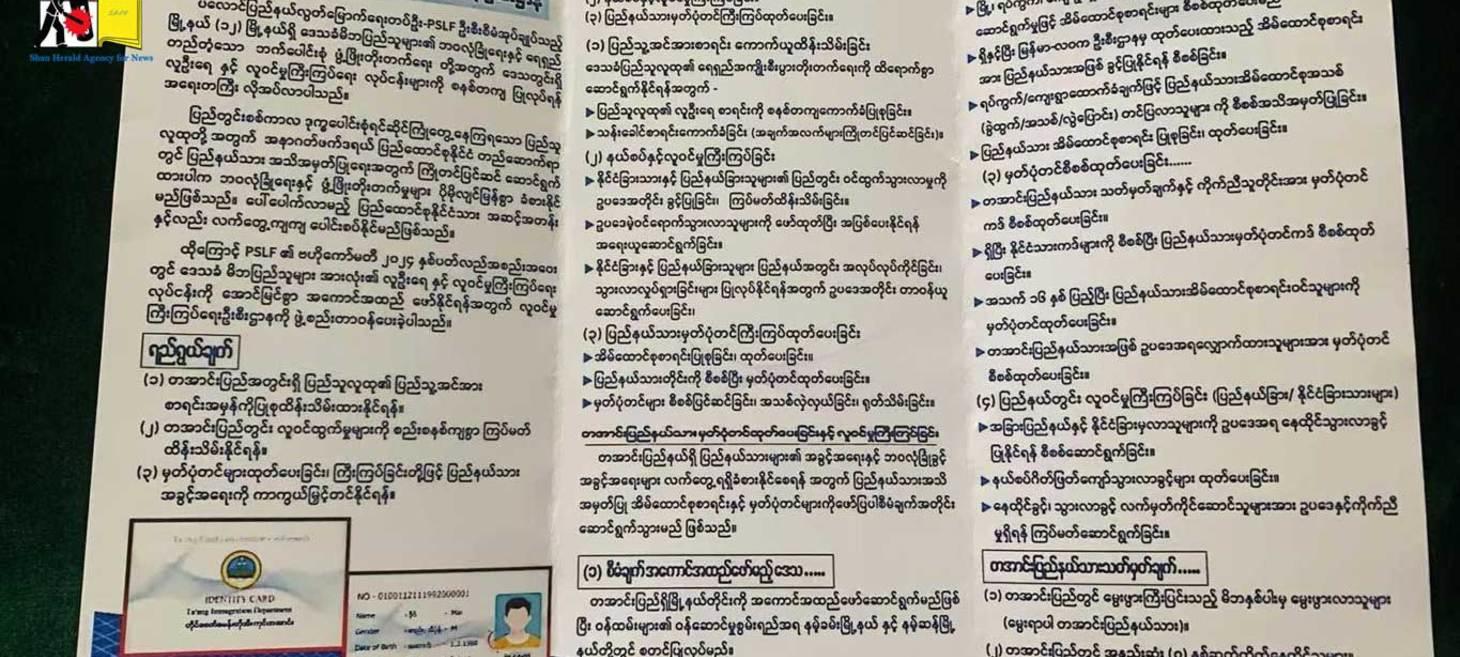 Shan Herald Agency for News
ပလောင်ပြည်နယ်လွတ်မြောက်ရေးတပ်ဦး-PSLF ဦးစီးစီမံအုပ်ချုပ်သည့်
မြို့နယ် (၁၂) မြို့နယ်ရှိ ဒေသခံမိဘပြည်သူများ၏ ဘဝလုံခြုံရေးနှင့် ရေရှည်
တည်တံ့သော ဘက်ပေါင်းစုံ ဖွံ့ဖြိုးတိုးတက်ရေး တို့အတွက် ဒေသတွင်းရှိ
လူဦးရေ နှင့် လူဝင်မှုကြီးကြပ်ရေး လုပ်ငန်းများကို စနစ်တကျ ပြုလုပ်ရန်
အရေးတကြီး လိုအပ်လာပါသည်။
ပြည်တွင်းစစ်ကာလ ဒုက္ခပေါင်းစုံရင်ဆိုင်ကြုံတွေ့နေကြရသော ပြည်သူ
လူထုတို့ အတွက် အနာဂတ်ဖက်ဒရယ် ပြည်ထောင်စုနိုင်ငံ တည်ဆောက်ရာ
တွင် ပြည်နယ်သား အသိအမှတ်ပြုရေးအတွက် ကြိုတင်ပြင်ဆင် ဆောင်ရွက်
ထားပါက ဘဝလုံခြုံရေးနှင့် ဖွံ့ဖြိုးတိုးတက်မှုများ ပိုမိုလျင်မြန်စွာ ခံစားနိုင်
မည်ဖြစ်သည်။ ပေါ်ပေါက်လာမည့် ပြည်ထောင်စုနိုင်ငံသား အဆင့်အတန်း
နှင့်လည်း လက်တွေ့ကျကျ ပေါင်းစပ်နိုင်မည်ဖြစ်သည်။
ထို့ကြောင့် PSLF ၏ ဗဟိုကော်မတီ ၂၀၂၄ နှစ်ပတ်လည်အစည်းအဝေး
တွင် ဒေသခံ မိဘပြည်သူများ အားလုံး၏ လူဦးရေ နှင့် လူဝင်မှုကြီးကြပ်ရေး
လုပ်ငန်းကို အောင်မြင်စွာ အကောင်အထည် ဖော်နိုင်ရန်အတွက် လူဝင်မှု
ကြီးကြပ်ရေးဦးစီးဌာနကို ဖွဲ့စည်းတာဝန်ပေးခဲ့ပါသည်။
ရည်ရွယ်ချက်
(၁) တအာင်းပြည်အတွင်းရှိ ပြည်သူလူထု၏ ပြည်သူ့အင်အား
စာရင်းအမှန်ကိုပြုစုထိန်းသိမ်းထားနိုင်ရန်။
(၂) တအာင်းပြည်တွင်း လူဝင်ထွက်မှုများကို စည်းစနစ်ကျစွာ ကြပ်မတ်
ထိန်းသိမ်းနိုင်ရန်။
(၃) မှတ်ပုံတင်များထုတ်ပေးခြင်း၊ ကြီးကြပ်ခြင်းတို့ဖြင့် ပြည်နယ်သား
အခွင့်အရေးကို ကာကွယ်မြှင့်တင်နိုင်ရန်။
IDENTITY CARD
Ta'ang Immigration Department
NO - 0100112111992000001
Name
Gender - M
Date of Birth - 1.2.1980
(၃) ပြည်နယ်သားမှတ်ပုံတင်ကြီးကြပ်ထုတ်ပေးခြင်း။
(၁) ပြည်သူ့အင်အားစာရင်း ကောက်ယူထိန်းသိမ်းခြင်း
ဒေသခံပြည်သူလူထု၏ ရေရှည်အကျိုးစီးပွားတိုးတက်ရေးကို ထိရောက်စွာ
ဆောင်ရွက်နိုင်ရန်အတွက် -
▶ ပြည်သူလူထု၏ လူဦးရေ စာရင်းကို စနစ်တကျကောက်ခံပြုစုခြင်း၊
▶ သန်းခေါင်စာရင်းကောက်ခံခြင်း (အချက်အလက်များကြိုတင်ပြင်ဆင်ခြင်း)။
(၂) နယ်စပ်နှင့်လူဝင်မှုကြီးကြပ်ခြင်း
▶ နိုင်ငံခြားသားနှင့် ပြည်နယ်ခြားသူများ၏ ပြည်တွင်း ဝင်ထွက်သွားလာမှုကို
ဥပဒေအတိုင်း ခွင့်ပြုခြင်း၊ ကြပ်မတ်ထိန်းသိမ်းခြင်း၊
▶ ဥပဒေမဲ့ဝင်ရောက်သွားလာသူများကို ဖော်ထုတ်ပြီး အပြစ်ပေးနိုင်ရန်
အရေးယူဆောင်ရွက်ခြင်း၊
▶ နိုင်ငံခြားနှင့် ပြည်နယ်ခြားသူများ ပြည်နယ်အတွင်း အလုပ်လုပ်ကိုင်ခြင်း၊
သွားလာလှုပ်ရှားခြင်းများ ပြုလုပ်နိုင်ရန်အတွက် ဥပဒေအတိုင်း တာဝန်ယူ
ဆောင်ရွက်ပေးခြင်း၊
(၃) ပြည်နယ်သားမှတ်ပုံတင်ကြီးကြပ်ထုတ်ပေးခြင်း
▶ အိမ်ထောင်စုစာရင်းပြုစုခြင်း၊ ထုတ်ပေးခြင်း။
▶ ပြည်နယ်သားတိုင်းကို စီစစ်ပြီး မှတ်ပုံတင်ထုတ်ပေးခြင်း။
▶ မှတ်ပုံတင်များ စီစစ်ပြင်ဆင်ခြင်း၊ အသစ်လဲလှယ်ခြင်း၊ ရုတ်သိမ်းခြင်း။
တအာင်းပြည်နယ်သား မှတ်ပုံတင်ထုတ်ပေးခြင်းနှင့် လူဝင်မှုကြီးကြပ်ခြင်း
တအာင်းပြည်နယ်ရှိ ပြည်နယ်သားများ၏ အခွင့်အရေးနှင့် ဘဝလုံခြုံခွင့်
အခွင့်အရေးများ လက်တွေ့ရရှိခံစားနိုင်စေရန် အတွက် ပြည်နယ်သားအသိ
အမှတ်ပြု အိမ်ထောင်စုစာရင်းနှင့် မှတ်ပုံတင်များကိုဖော်ပြပါစီမံချက်အတိုင်း
ဆောင်ရွက်သွားမည် ဖြစ်သည်။
(၁) စီမံချက်အကောင်အထည်ဖော်မည့်ဒေသ.....
တအာင်းပြည်ရှိမြို့နယ်တိုင်းကို အကောင်အထည်ဖော်ဆောင်ရွက်မည်ဖြစ်
ပြီး ဝန်ထမ်းများ၏ ဝန်ဆောင်မှုစွမ်းရည်အရ နမ့်ခမ်းမြို့နယ် နှင့် နမ့်ဆန်မြို့
နယ်တို့တွင် စတင်ပြုလုပ်မည်။
ဆောင်ရွက်မှုဖြင့် အိမ်ထောင်စုစာရင်းများ စီစစ်ထုတ်ပေးခြင်း
▶ ရှိနှင့်ပြီး မြန်မာ-လဝက ဦးစီးဌာနမှ ထုတ်ပေးထားသည့် အိမ်ထောင်စုစာရင်း
အား ပြည်နယ်သားအဖြစ် ခွင့်ပြုနိုင်ရန် စီစစ်ခြင်း။
▶ ရပ်ကွက်/ကျေးရွာထောက်ခံချက်ဖြင့် ပြည်နယ်သားအိမ်ထောင်စုအသစ်
(ခွဲထွက်/အသစ်/လွဲပြောင်း) တင်ပြလာသူများ ကို စီစစ်အသိအမှတ်ပြုခြင်း။
▶ ပြည်နယ်သား အိမ်ထောင်စုစာရင်း ပြုစုခြင်း၊ ထုတ်ပေးခြင်း။
(၃) မှတ်ပုံတင်စီစစ်ထုတ်ပေးခြင်း......
▶ တအာင်းပြည်နယ်သား သတ်မှတ်ချက်နှင့် ကိုက်ညီသူတိုင်းအား မှတ်ပုံတင်
ကဒ် စီစစ်ထုတ်ပေးခြင်း။
▶ ရှိပြီး နိုင်ငံသားကဒ်များကို စီစစ်ပြီး ပြည်နယ်သားမှတ်ပုံတင်ကဒ် စီစစ်ထုတ်
ပေးခြင်း။
▶ အသက် ၁၆ နှစ် ပြည့်ပြီး ပြည်နယ်သားအိမ်ထောင်စုစာရင်းဝင်သူများကို
မှတ်ပုံတင်ထုတ်ပေးခြင်း။
▶ တအာင်းပြည်နယ်သားအဖြစ် ဥပဒေအရလျှောက်ထားသူများအား မှတ်ပုံတင်
စီစစ်ထုတ်ပေးခြင်း။
(၄) ပြည်နယ်တွင်း လူဝင်မှုကြီးကြပ်ခြင်း (ပြည်နယ်ခြား/ နိုင်ငံခြားသားများ)
▶ အခြားပြည်နယ်နှင့် နိုင်ငံခြားမှလာသူများကို ဥပဒေအရ နေထိုင်သွားလာခွင့်
ပြုနိုင်ရန် စီစစ်ဆောင်ရွက်ခြင်း။
▶ နယ်စပ်ဂိတ်ဖြတ်ကျော်သွားလာခွင့်များ ထုတ်ပေးခြင်း။
▶ နေထိုင်ခွင့်၊ သွားလာခွင့် လက်မှတ်ကိုင်ဆောင်သူများအား ဥပဒေနှင့်ကိုက်ညီ
မှုရှိရန် ကြပ်မတ်ဆောင်ရွက်ခြင်း။
တအာင်းပြည်နယ်သားသတ်မှတ်ချက်.....
(၁) တအာင်းပြည်တွင် မွေးဖွားကြီးပြင်းသည့် မိဘနှစ်ပါးမှ မွေးဖွားလာသူများ
(မွေးရာပါ တအာင်းပြည်နယ်သား)။